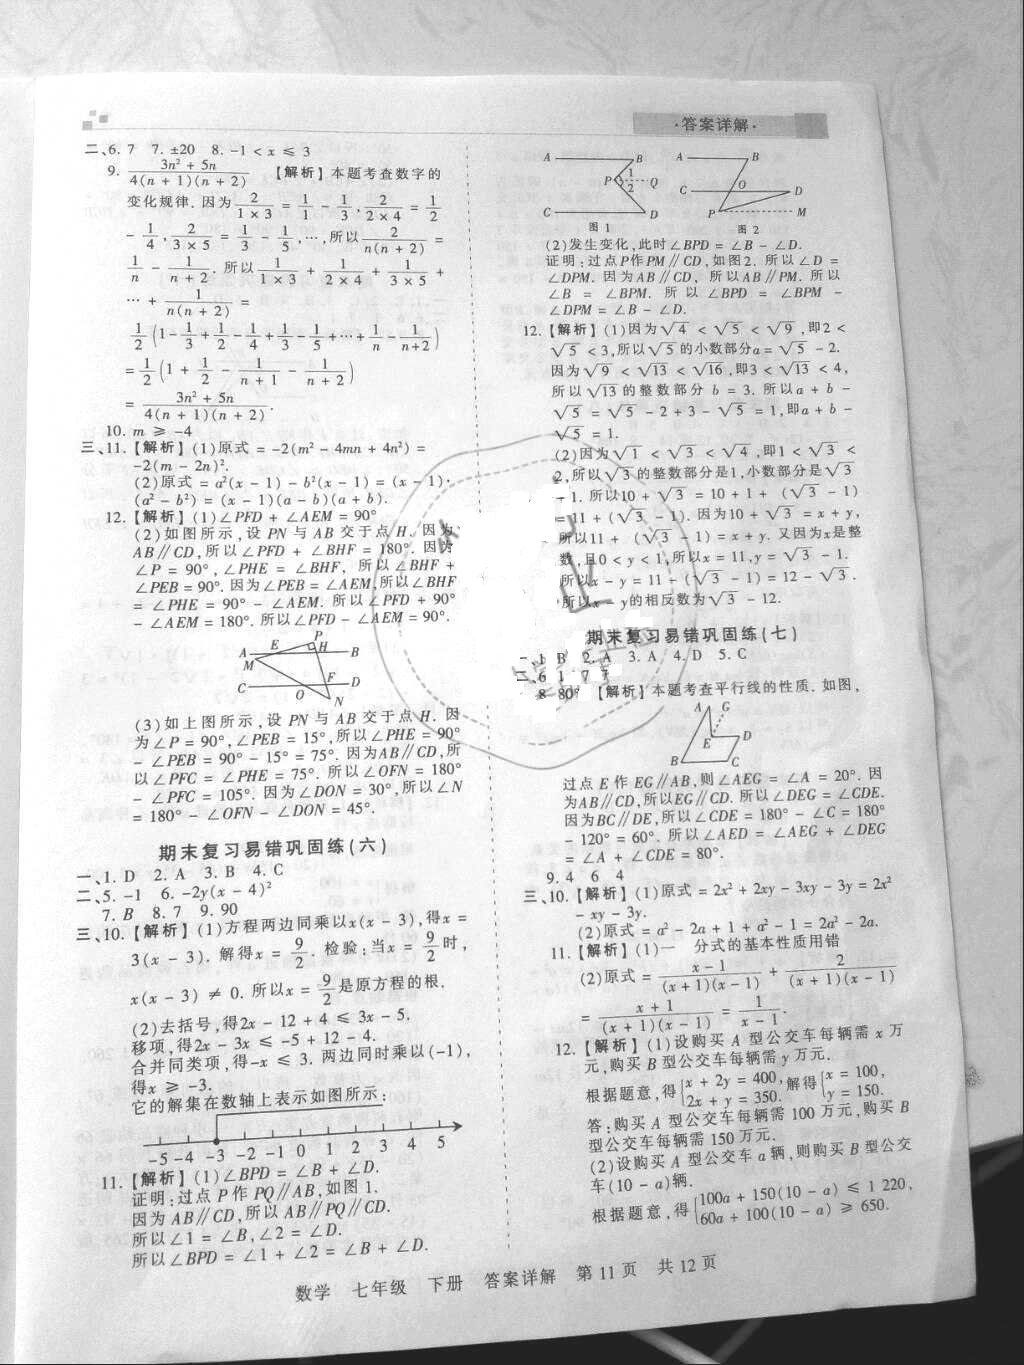 ·答案详解·
二、6. 7  7. ±20  8. -1 < x ≤ 3
9. (3n² + 5n)/(4(n + 1)(n + 2)) 【解析】本题考查数字的
变化规律. 因为 2/(1×3) = 1/1 - 1/3, 2/(2×4) = 1/2
- 1/4, 2/(3×5) = 1/3 - 1/5, …, 所以 2/(n(n + 2)) =
1/n - 1/(n + 2). 所以 1/(1×3) + 1/(2×4) + 1/(3×5) +
… + 1/(n(n + 2)) =
1/2(1 - 1/3 + 1/2 - 1/4 + 1/3 - 1/5 + … + 1/n - 1/(n+2))
= 1/2(1 + 1/2 - 1/(n + 1) - 1/(n + 2))
= (3n² + 5n)/(4(n + 1)(n + 2)).
10. m ≥ -4
三、11. 【解析】(1)原式 = -2(m² - 4mn + 4n²) =
-2(m - 2n)².
(2)原式 = a²(x - 1) - b²(x - 1) = (x - 1)·
(a² - b²) = (x - 1)(a - b)(a + b).
12. 【解析】(1)∠PFD + ∠AEM = 90°
(2)如图所示,设 PN 与 AB 交于点 H. 因为
AB∥CD,所以∠PFD + ∠BHF = 180°. 因为
∠P = 90°,∠PHE = ∠BHF, 所以∠BHF +
∠PEB = 90°. 因为∠PEB = ∠AEM,所以∠BHF
= ∠PHE = 90° - ∠AEM. 所以∠PFD + 90°
- ∠AEM = 180°. 所以∠PFD - ∠AEM = 90°.
P
A E H B
M
C O F D
N
(3)如上图所示,设 PN 与 AB 交于点 H. 因
为∠P = 90°,∠PEB = 15°,所以∠PHE = 90°
- ∠PEB = 90° - 15° = 75°. 因为AB∥CD,所
以∠PFC = ∠PHE = 75°. 所以∠OFN = 180°
- ∠PFC = 105°. 因为∠DON = 30°,所以∠N
= 180° - ∠OFN - ∠DON = 45°.
期末复习易错巩固练(六)
一、1. D  2. A  3. B  4. C
二、5. -1  6. -2y(x - 4)²
7. B  8. 7  9. 90
三、10. 【解析】(1)方程两边同乘以x(x - 3),得x =
3(x - 3). 解得x = 9/2. 检验:当x = 9/2时,
x(x - 3) ≠ 0. 所以x = 9/2是原方程的根.
(2)去括号,得2x - 12 + 4 ≤ 3x - 5.
移项,得2x - 3x ≤ -5 + 12 - 4.
合并同类项,得-x ≤ 3. 两边同时乘以(-1),
得x ≥ -3.
它的解集在数轴上表示如图所示:
-5 -4 -3 -2 -1 0 1 2 3 4 5
11. 【解析】(1)∠BPD = ∠B + ∠D.
证明:过点 P 作 PQ∥AB,如图 1.
因为 AB∥CD,所以 AB∥PQ∥CD.
所以∠1 = ∠B,∠2 = ∠D.
所以∠BPD = ∠1 + ∠2 = ∠B + ∠D.
A B
P 1 2 Q
C D
图 1
A B
C O D
P M
图 2
(2)发生变化,此时∠BPD = ∠B - ∠D.
证明:过点P作PM∥CD,如图2. 所以∠D =
∠DPM. 因为AB∥CD, 所以AB∥PM. 所以
∠B = ∠BPM. 所以∠BPD = ∠BPM -
∠DPM = ∠B - ∠D.
12. 【解析】(1)因为√4 < √5 < √9,即2 <
√5 < 3,所以√5的小数部分a = √5 - 2.
因为√9 < √13 < √16,即3 < √13 < 4,
所以√13的整数部分 b = 3. 所以a + b -
√5 = √5 - 2 + 3 - √5 = 1,即a + b -
√5 = 1.
(2)因为√1 < √3 < √4,即1 < √3 <
2,所以√3的整数部分是1,小数部分是√3
- 1. 所以10 + √3 = 10 + 1 + (√3 - 1)
= 11 + (√3 - 1). 因为10 + √3 = x + y,
所以11 + (√3 - 1) = x + y. 又因为x是整
数,且0 < y < 1,所以x = 11,y = √3 - 1.
所以x - y = 11 - (√3 - 1) = 12 - √3.
所以x - y的相反数为√3 - 12.
期末复习易错巩固练(七)
一、1 B  2. A  3. A  4. D  5. C
二、6 1  7 7
8 80° 【解析】本题考查平行线的性质. 如图,
A G
E D
B C
过点 E 作 EG∥AB,则∠AEG = ∠A = 20°. 因
为AB∥CD,所以EG∥CD. 所以∠DEG = ∠CDE.
因为BC∥DE,所以∠CDE = 180° - ∠C = 180°
- 120° = 60°. 所以∠AED = ∠AEG + ∠DEG
= ∠A + ∠CDE = 80°.
9. 4  6  4
三、10. 【解析】(1)原式 = 2x² + 2xy - 3xy - 3y = 2x²
- xy - 3y.
(2)原式 = a² - 2a + 1 + a² - 1 = 2a² - 2a.
11. 【解析】(1)一  分式的基本性质用错
(2)原式 = (x - 1)/((x + 1)(x - 1)) + 2/((x + 1)(x - 1))
= (x + 1)/((x + 1)(x - 1)) = 1/(x - 1).
12. 【解析】(1)设购买 A 型公交车每辆需 x 万
元,购买 B 型公交车每辆需 y 万元.
根据题意,得{x + 2y = 400, 2x + y = 350. 解得{x = 100, y = 150.
答:购买 A 型公交车每辆需 100 万元,购买 B
型公交车每辆需 150 万元.
(2)设购买 A 型公交车a辆,则购买 B 型公交
车(10 - a)辆.
根据题意,得{100a + 150(10 - a) ≤ 1 220, 60a + 100(10 - a) ≥ 650.
数学  七年级  下册  答案详解  第 11 页  共 12 页